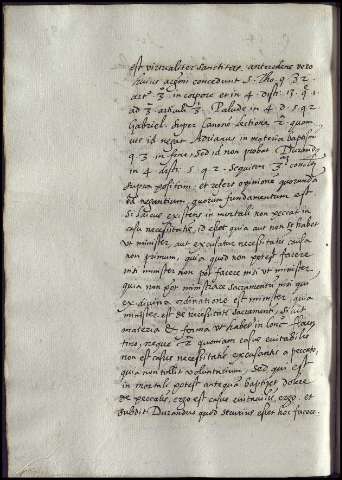 est virtualiter sanctitas. antecedens vero
huius argum̃ concedunt S. Tho. q. 32.
artº 3 in corpore et in 4 dist. 13. q. 1
ad 3 articuli 3. Palude in 4 d. 5 q 2
Gabriel super Canonẽ lectione 2. quam
vis id negat Adrianus in materia baptismi
q 3 in fine, sed id non probat Durandus
in 4 dist. 5. q. 2. sequitur 3ã concl
supra positam: et refert opinionẽ quorundã
id negantium, quorum fundamentum est
si laicus existens in mortali non peccat in
casu necessitatis, id est quia aut non se habet
ut minister, aut excusatur necessitatis causa
non primum, quia quod non potest facere
nisi minister non põt facere nisi ut minister
quia non põt ministrare sacramentũ nisi qui
ex divina ordinatione est minister, quia
minister est de necessitate sacramenti, sicut
materia & forma ut habetur in conc. floren
tino, neque 2 quoniam casus evitabilis
non est casus necessitatis excusantis a peccato,
quia non tollit voluntarium, sed qui est
in mortali potest antequã baptizet dolere
de peccatis, ergo est casus evitabilis, ergo. et
subdit Durandus quod securius esset hoc facere.